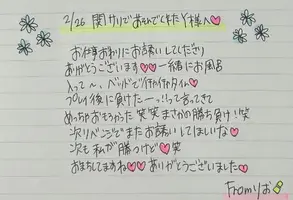 2/26 関サリであそんでくれたY様へ♡
お仕事おわりにお誘いしてくださり
ありがとうございます♡♡一緒にお風呂
入って〜、ベッドでイチャイチャタイム♡
プレイ後に負けたーっ!!って言ってきて
めっちゃおもろかった 笑笑 まさかの勝ち負け!笑
次リベンジでまたお誘いしてほしいな♡
次も私が勝つけど♡笑
おまちしてますね♡♡ありがとうございました♡
From りお